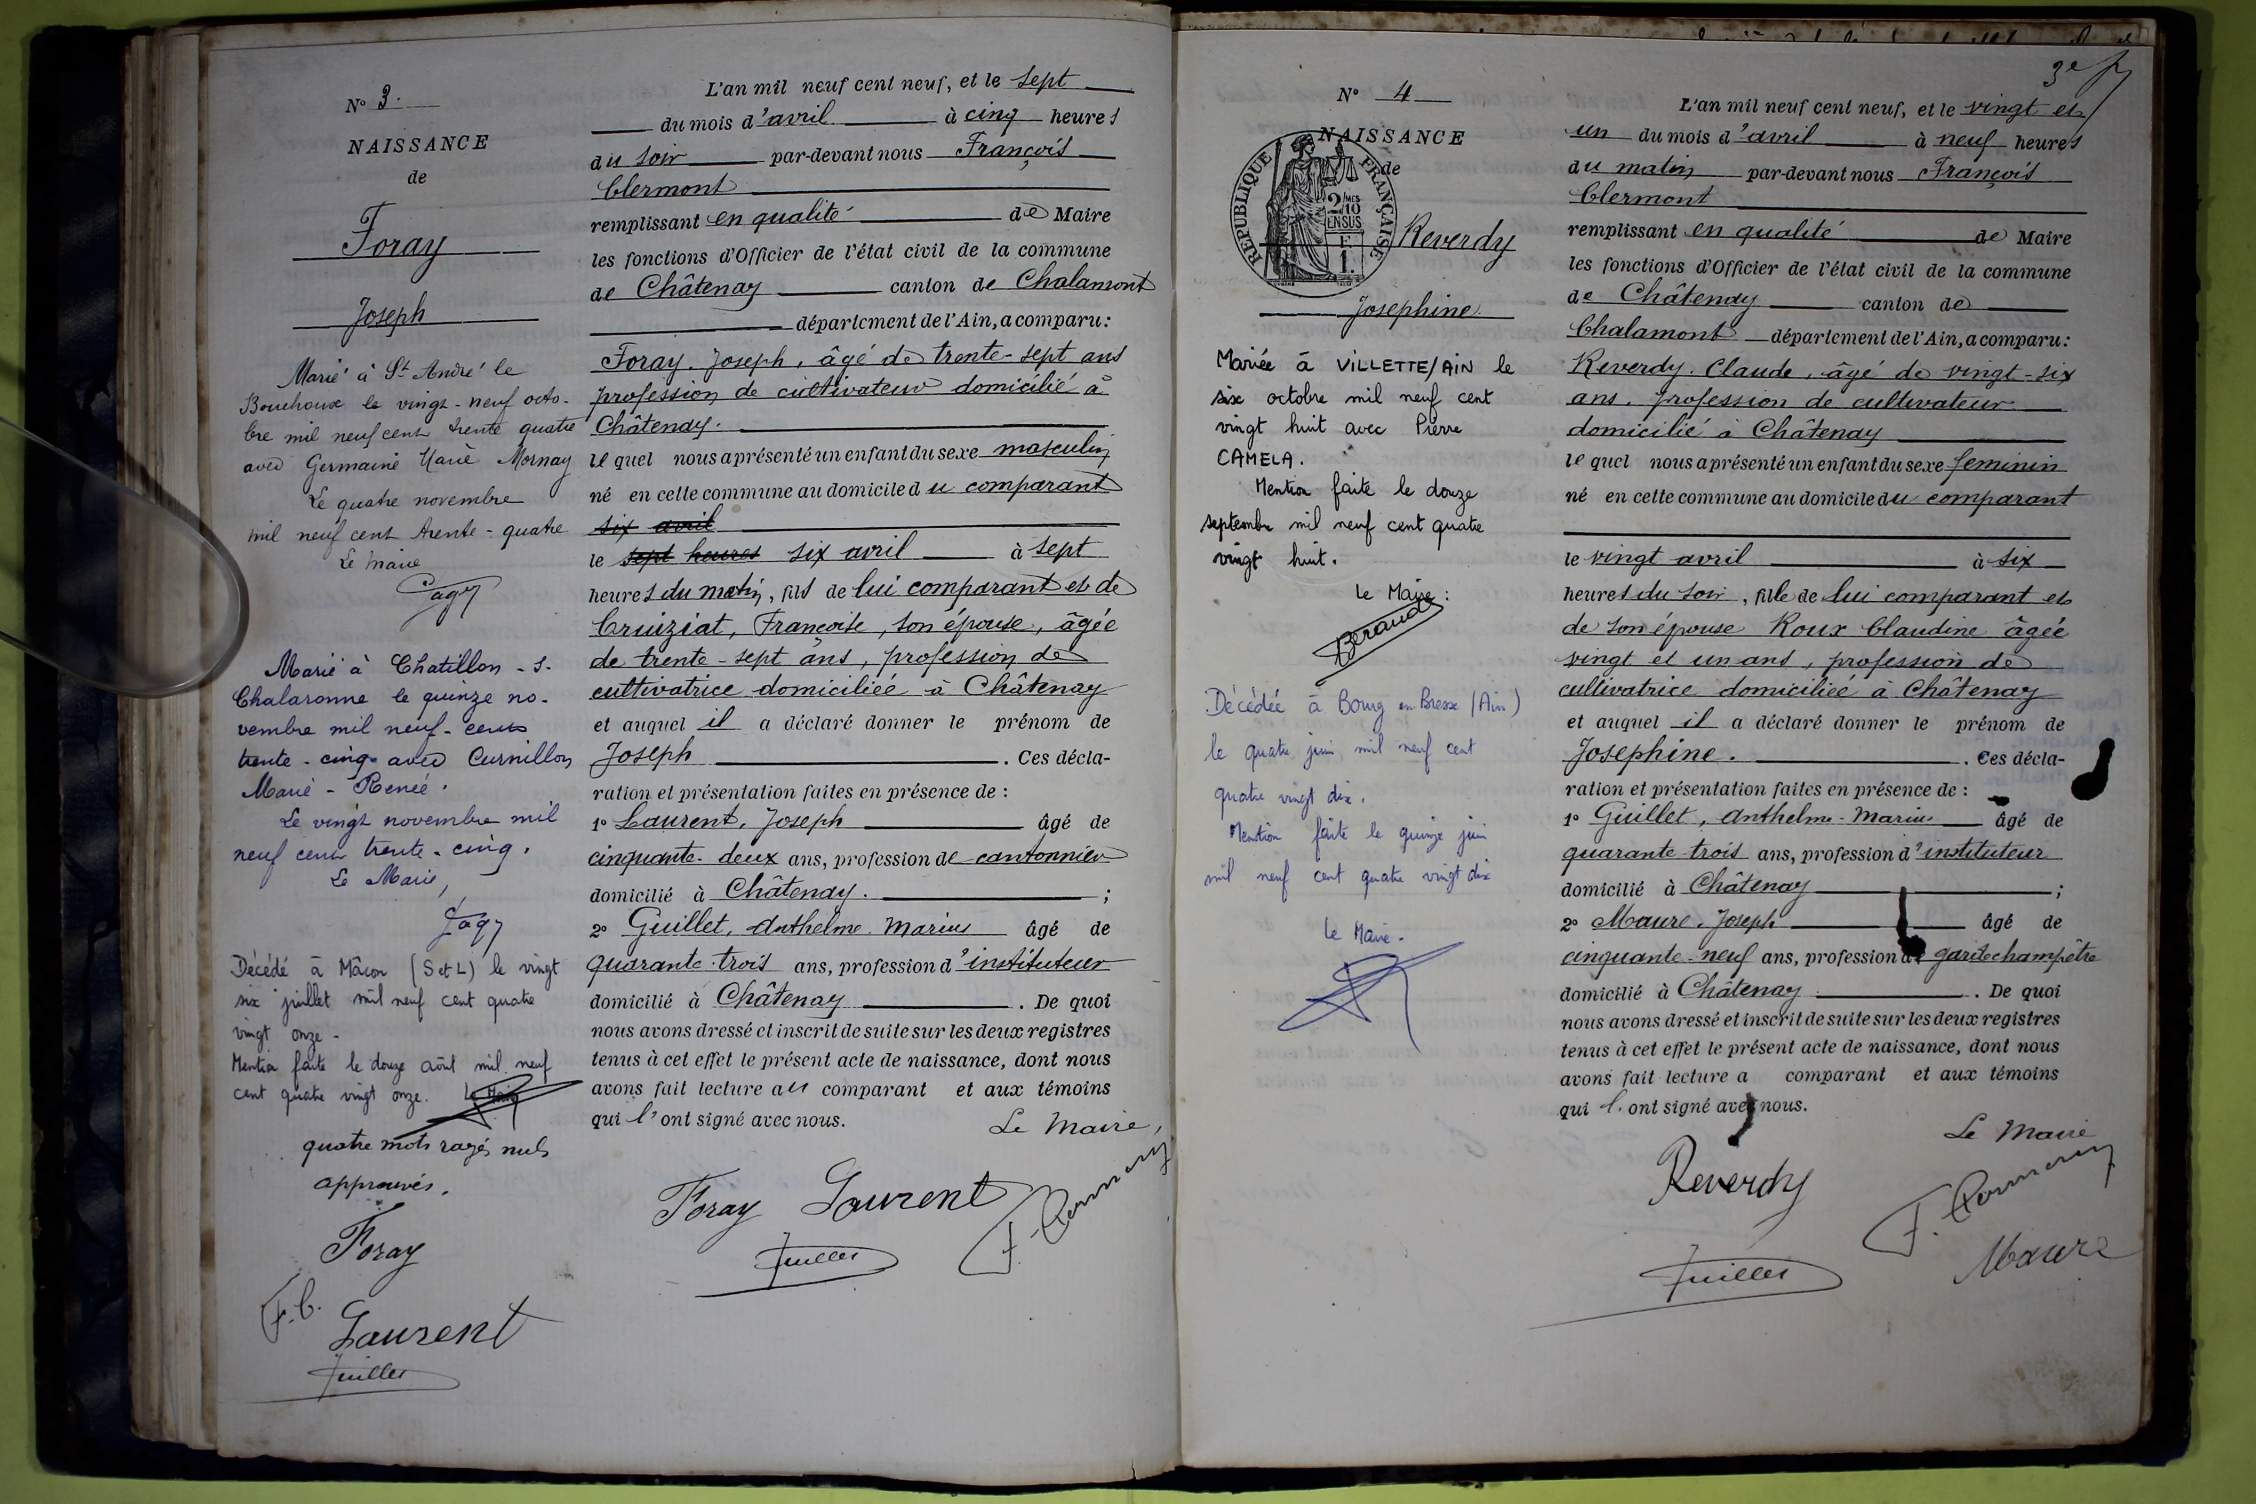 N° 3.
NAISSANCE
de
Foray
Joseph
Marié à St André le
Bouchoux le vingt-neuf octo-
bre mil neuf cent trente quatre
avec Germaine Marie Mornay
Le quatre novembre
mil neuf cent trente-quatre
Le Maire
Marié à Chatillon-s.
Chalaronne le quinze no-
vembre mil neuf-cent
trente-cinq avec Curnillon
Marie-Renée.
Le vingt novembre mil
neuf cent trente-cinq.
Le Maire,
Décédé à Mâcon (S et L) le vingt
six juillet mil neuf cent quatre
vingt onze.
Mention faite le douze août mil neuf
cent quatre vingt onze. Le Maire
quatre mots rayés nuls
approuvés.
Foray
F. C.
Laurent
Guillet
L'an mil neuf cent neuf, et le sept
du mois d'avril à cinq heures
du soir par-devant nous François
Clermont
remplissant en qualité de Maire
les fonctions d'Officier de l'état civil de la commune
de Châtenay canton de Chalamont
département de l'Ain, a comparu:
Foray. Joseph, âgé de trente-sept ans
profession de cultivateur domicilié à
Châtenay.
lequel nous a présenté un enfant du sexe masculin
né en cette commune au domicile du comparant
six avril
le sept heures six avril à sept
heures du matin, fils de lui comparant et de
Cruiziat, Françoise, son épouse, âgée
de trente-sept ans, profession de
cultivatrice domiciliée à Châtenay
et auquel il a déclaré donner le prénom de
Joseph. Ces décla-
ration et présentation faites en présence de :
1° Laurent, Joseph âgé de
cinquante-deux ans, profession de cantonnier
domicilié à Châtenay. ;
2° Guillet, Anthelme Marius âgé de
quarante-trois ans, profession d'instituteur
domicilié à Châtenay. De quoi
nous avons dressé et inscrit de suite sur les deux registres
tenus à cet effet le présent acte de naissance, dont nous
avons fait lecture au comparant et aux témoins
qui l'ont signé avec nous.
Le Maire,
Foray Laurent
Guillet
F. Clermont
3e f
N° 4
NAISSANCE
de
RÉPUBLIQUE FRANÇAISE
2/10
EN SUS
Reverdy
Josephine
Mariée à VILLETTE/AIN le
six octobre mil neuf cent
vingt huit avec Pierre
CAMELA.
Mention faite le douze
septembre mil neuf cent quatre
vingt huit.
Le Maire :
Beraud
Décédée à Bourg en Bresse (Ain)
le quatre juin mil neuf cent
quatre vingt dix.
Mention faite le quinze juin
mil neuf cent quatre vingt dix
Le Maire.
L'an mil neuf cent neuf, et le vingt et
un du mois d'avril à neuf heures
du matin par-devant nous François
Clermont
remplissant en qualité de Maire
les fonctions d'Officier de l'état civil de la commune
de Châtenay canton de
Chalamont département de l'Ain, a comparu:
Reverdy. Claude, âgé de vingt-six
ans. profession de cultivateur
domicilié à Châtenay
lequel nous a présenté un enfant du sexe feminin
né en cette commune au domicile du comparant
le vingt avril à six
heures du soir, fille de lui comparant et
de son épouse Roux Claudine âgée
vingt et un ans, profession de
cultivatrice domiciliée à Châtenay
et auquel il a déclaré donner le prénom de
Josephine. Ces décla-
ration et présentation faites en présence de :
1° Guillet, Anthelme-Marius âgé de
quarante trois ans, profession d'instituteur
domicilié à Châtenay ;
2° Maure. Joseph âgé de
cinquante-neuf ans, profession de garde champêtre
domicilié à Châtenay. De quoi
nous avons dressé et inscrit de suite sur les deux registres
tenus à cet effet le présent acte de naissance, dont nous
avons fait lecture a comparant et aux témoins
qui l'ont signé avec nous.
Le Maire
Reverdy
F. Clermont
Guillet
Maure